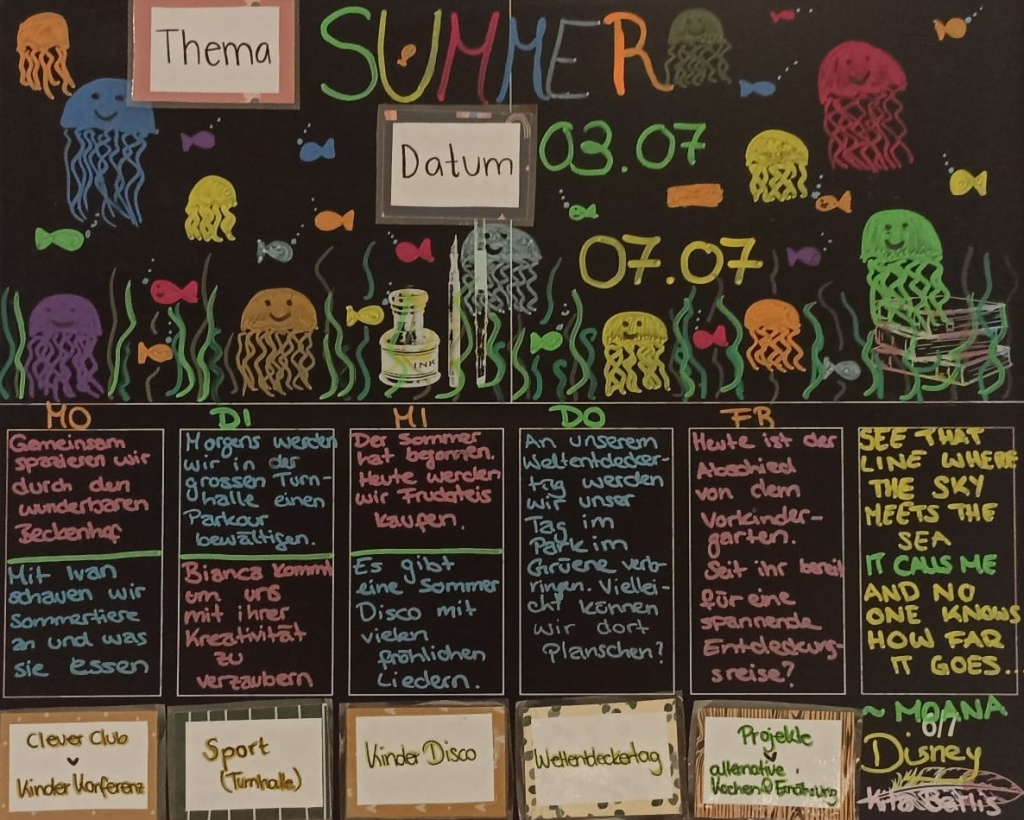 Thema
SUMMER
Datum
03.07
07.07
INK
MO
Gemeinsam
spazieren wir
durch den
wunderbaren
Zeckenhof
Mit Ivan
schauen wir
Sommertiere
an und was
sie essen
DI
Morgens werden
wir in der
grossen Turn-
halle einen
Parkour
bewältigen.
Bianca kommt
um uns
mit ihrer
Kreativität
zu
verzaubern
MI
Der Sommer
hat begonnen.
Heute werden
wir Fruchteis
kaufen.
Es gibt
eine Sommer
Disco mit
vielen
fröhlichen
Liedern.
DO
An unserem
Weltentdecker-
tag werden
wir unser
Tag im
Park im
Gruene verb-
ringen. Viellei-
cht können
wir dort
Planschen?
FR
Heute ist der
Abschied
von dem
Vorkinder-
garten.
Seit ihr bereit
für eine
spannende
Entdeckung-
sreise?
SEE THAT
LINE WHERE
THE SKY
MEETS THE
SEA
IT CALLS ME
AND NO
ONE KNOWS
HOW FAR
IT GOES...
~ MOANA
6/7
Disney
Clever Club
Kinder Konferenz
Sport
(Turnhalle)
Kinder Disco
Weltentdeckertag
Projekte
alternative
Kochen & Ernährung